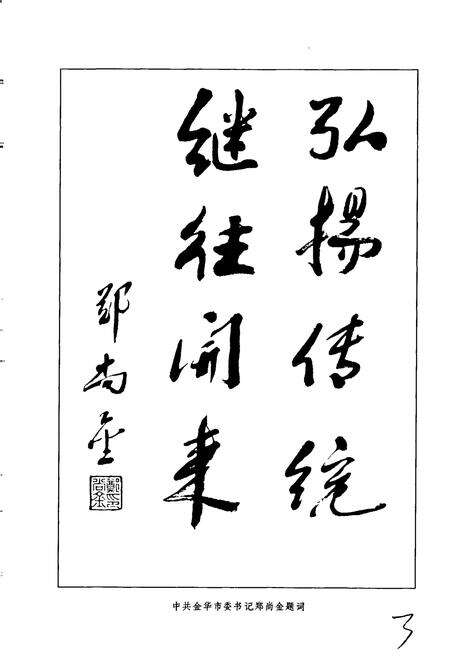 弘揚传统
继往開来
郑尚金
中共金华市委书记郑尚金题词